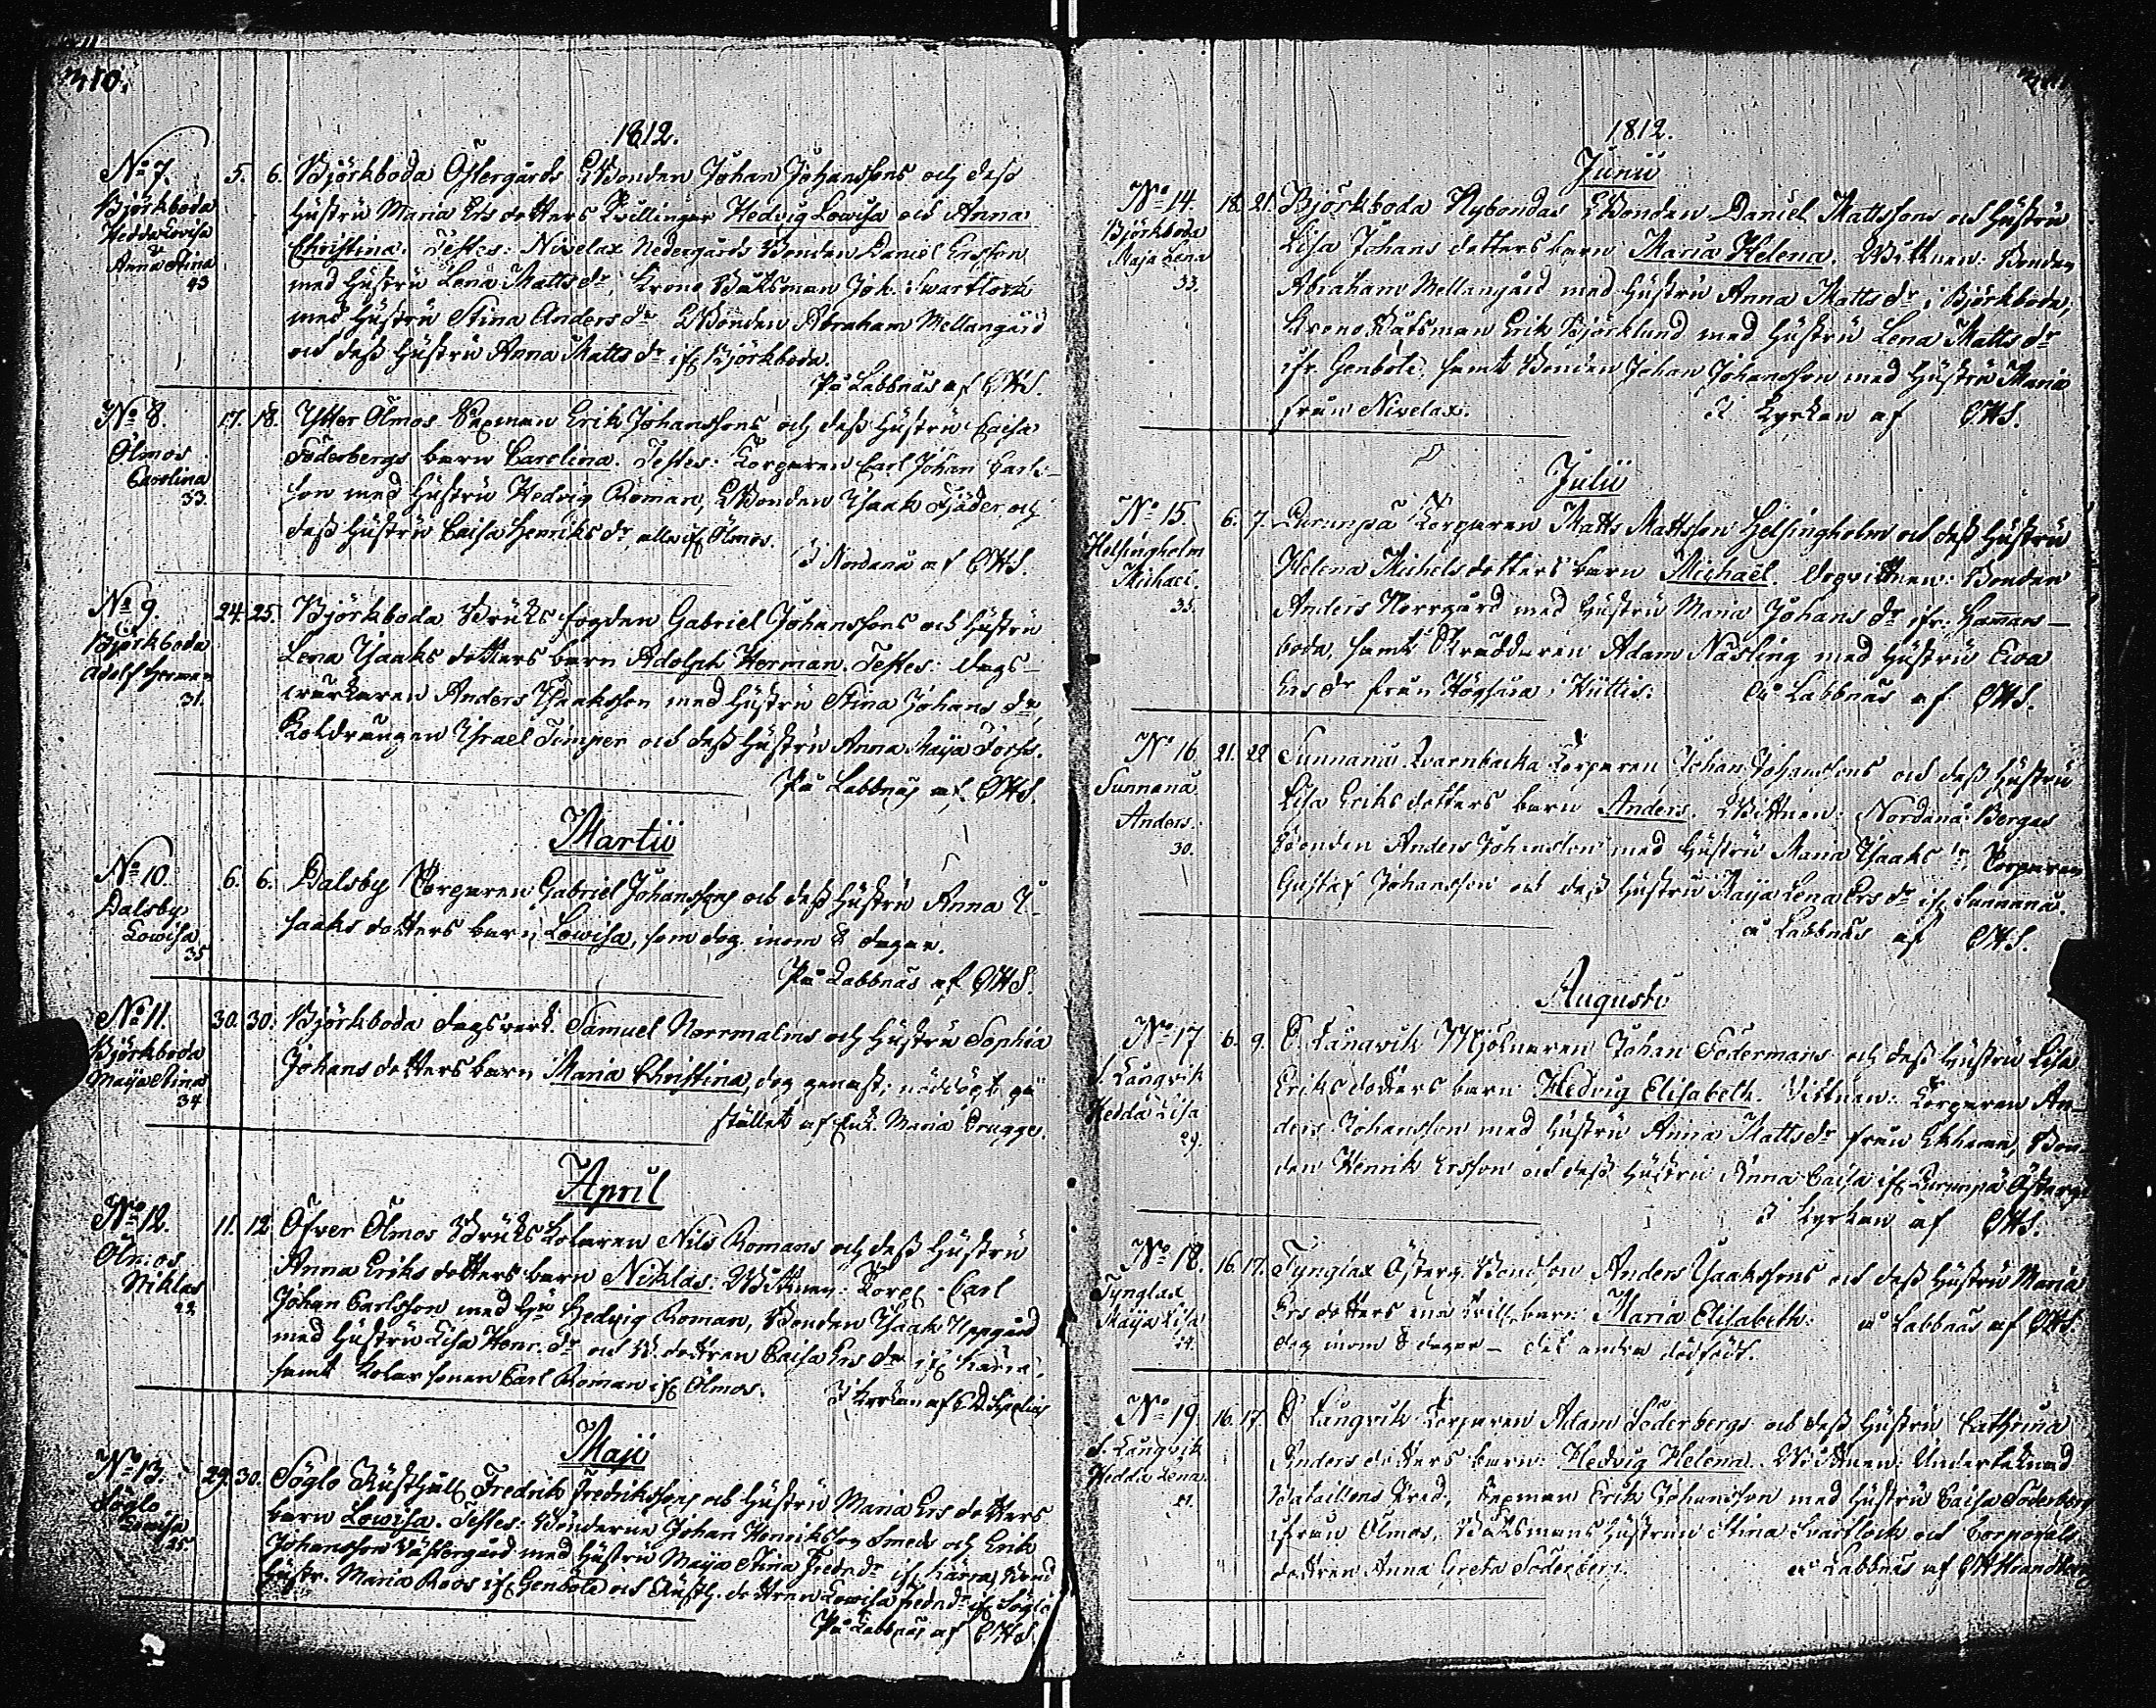 310.
1812.
No 7.
Björkboda
Hedda Lovisa
&
Anna Stina
43
5. 6. Björkboda Östergårds Bonden Johan Johanssons och dess
hustru Maria Ers dotters tvillingar Hedvig Lowisa och Anna
Christina. Testes: Nivelax Nedergårds Bonden Daniel Ersson
med hustru Lena Matts dr, Krono Båtsman Joh. Swartlock
med hustru Stina Anders dr Bonden Abraham Mellangård
och dess hustru Anna Matts dr if. Björkboda.
På Labbnäs af OHS.
No 8.
Ölmos
Carolina
33.
17. 18. Ytter Ölmos Sexman Erik Johanssons och dess hustru Caisa
Söderbergs barn Carolina. Testes: Torparen Carl Johan Carls-
son med hustru Hedvig Roman, Bonden Isaak Tjäder och
dess hustru Caisa Henriks dr, alla if. Ölmos.
I Nordanå af OHS.
No 9.
Björkboda
Adolf Herman
31.
24. 25. Björkboda Bruksfogden Gabriel Johanssons och hustru
Lena Isaaks dotters barn Adolph Herman. Testes: dags-
verkaren Anders Isaksson med hustru Stina Johans dr,
Koldrängen Israel Timper och dess hustru Anna Maija Forss.
På Labbnäs af OHS.
Martii
No 10.
Dalsby
Lowisa
35
6. 6. Dalsby Torparen Gabriel Johanssons och dess hustru Anna I-
saaks dotters barn Lowisa, som dog inom 8 dagar.
På Labbnäs af OHS.
No 11.
Björkboda
Maija Stina
34
30. 30. Björkboda dagsverk. Samuel Norrmalms och hustru Sophia
Johans dotters barn Maria Christina, dog genast; nöddöpt på
stället af Enk. Maria Brugge.
April
No 12.
Ölmos
Niklas
22
11. 12 Öfver Ölmos Bruks Kolaren Nils Romans och dess hustru
Anna Eriks dotters barn Niklas. Wittnen: Torp. Carl
Johan Carlsson med hu Hedvig Roman, Bonden Isaak Uppgård
med hustru Lisa Henr. dr och B. dottren Caisa Ers dr if. Kärra,
samt Kolar sonen Carl Roman if. Ölmos.
I Kyrkan af
Maji
No 13.
Söglo
Lowisa
25
29. 30. Söglo Rusthåll. Fredrik Fredrikssons och hustru Maria Ers dotters
barn Lowisa. Testes: Bönderna Johan Henriksson Smeds och Erik
Johansson Västergård med hustru Maija Stina Fredr. dr if. Kärra, Bond
hustr. Maria Roos if. Genböle och Rusth. dottren Lowisa Fredr. dr if. Söglö
På Labbnäs af OHS
1812.
Junii
No 14.
Björkboda
Maja Lena
33.
18. 21. Björkboda Nybondas Bonden Daniel Mattssons och hustru
Lisa Johans dotters barn Maria Helena. Wittnen: Bonden
Abraham Mellangård med hustru Anna Matts dr i Björkboda,
Krono Båtsman Erik Björklund med hustru Lena Matts dr
ifr. Genböle, samt Bonden Johan Johansson med hustru Maria
från Nivelax. I Kyrkan af OHS.
Julii
No 15.
Helsingholm
Michael
35.
6. 7. Purunpä Torparen Matts Mattsson Helsingholm och dess hustru
Helena Michels dotters barn Michaël. Dopvittnen: Bonden
Anders Norrgård med hustru Maria Johans dr ifr. Hammars-
boda, samt Skräddaren Adam Näsling med hustru Eva
Ers dr från Högsåra i Hiittis. På Labbnäs af OHS.
No 16
Sunnanå
Anders.
30.
21. 22 Sunnanå Qvarnbacka Torparen Johan Johanssons och dess hustru
Lisa Eriks dotters barn Anders. Wittnen: Nordanå Bergas
Bonden Anders Johansson med hustru Maria Isaaks dr, Torparen
Gustaf Johansson och dess hustru Maija Lena Ers dr if. Sunnanå.
å Labbnäs af OHS.
Augusti
No 17
S. Långvik
Hedda Lisa
29.
6. 9. S. Långvik Mjölnaren Johan Södermans och dess hustru Lisa
Eriks dotters barn Hedvig Elisabeth. Vittnen: Torparen An-
ders Johansson med hustru Anna Matts dr från Ekhamn, Bon-
den Henrik Ersson och dess hustru Anna Caisa if. Purunpä Österg.
I Kyrkan af OHS.
No 18.
Tynglax
Maija Lisa
24.
16. 17. Tynglax Österg. Bondson Anders Isaakssons och dess hustru Maria
Ers dotters ena tvill. barn Maria Elisabeth. å Labbnäs af OHS.
dog inom 8 dagar – det andra dödfödt.
No 19
S. Långvik
Hedda Lena.
21.
16. 17. S. Långvik Torparen Adam Söderbergs och dess hustru Cathrina
Anders dotters barn Hedvig Helena. Wittnen: Undertecknad
Bataillons Pred., Sexman Erik Johansson med hustru Caisa Söderberg
ifrån Ölmos, Båtsmans hustrun Stina Svartlock och Corporals
dottren Anna Greta Söderberg. å Labbnäs af OH Strandberg